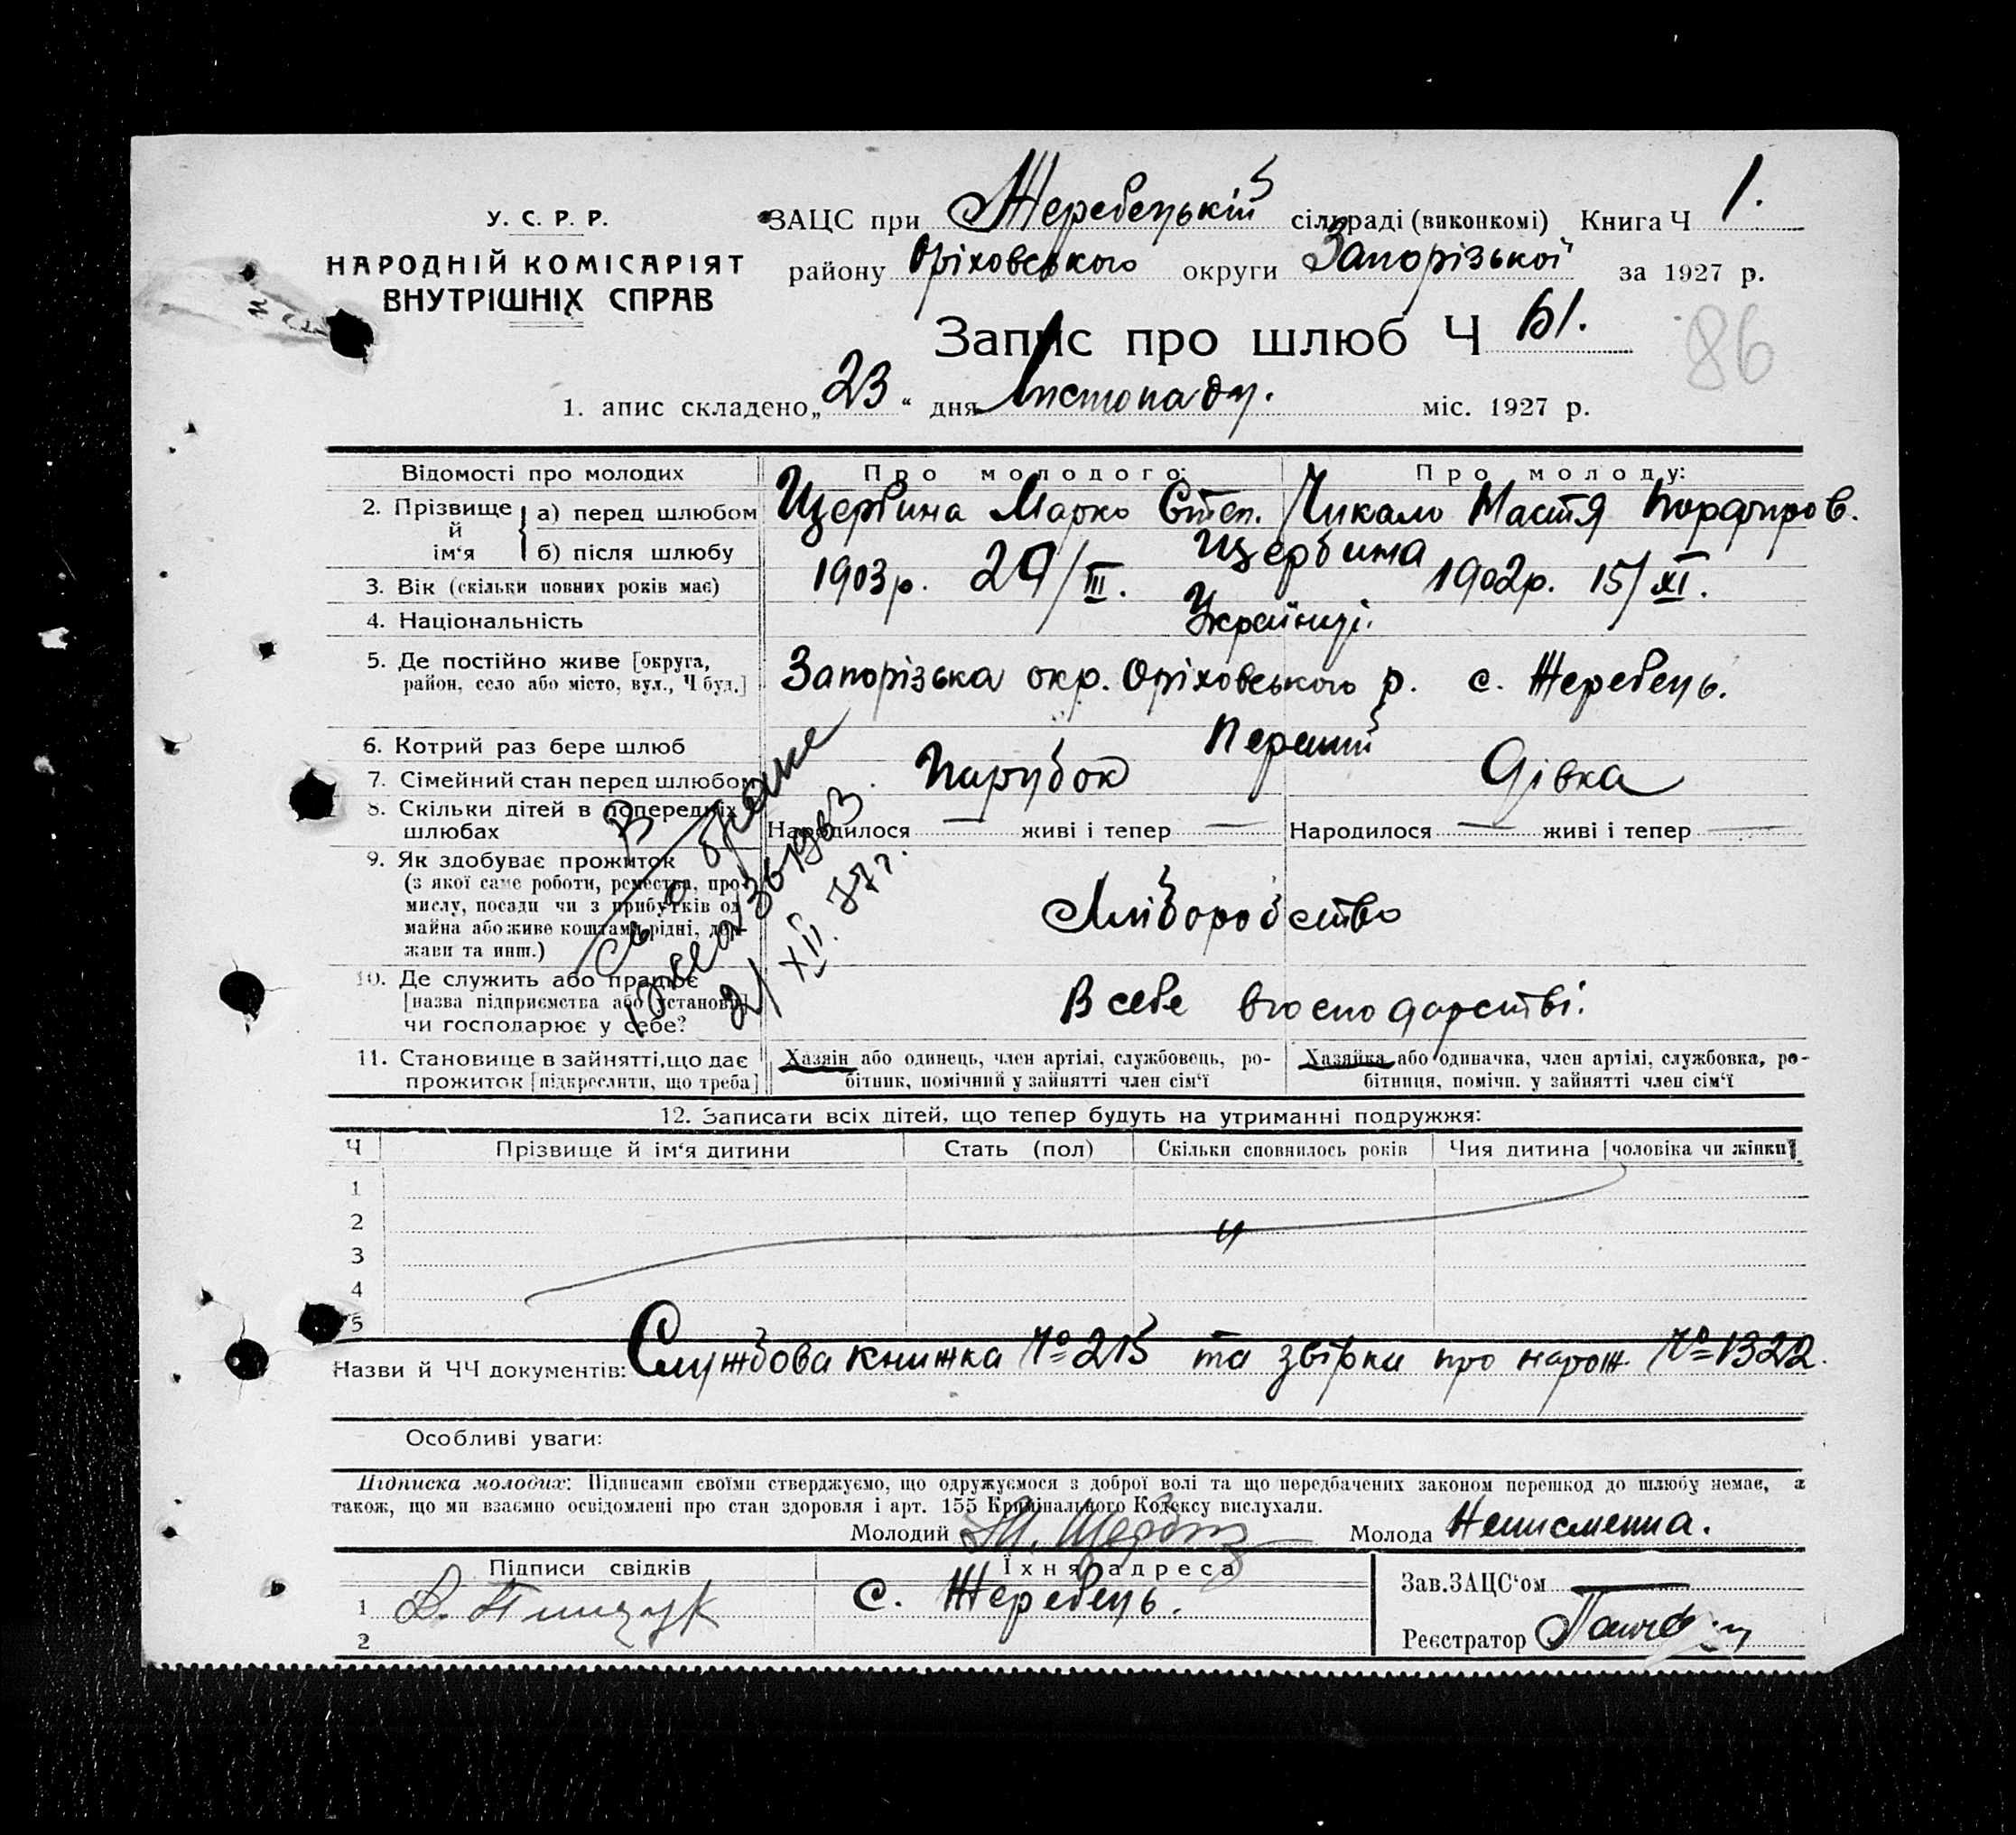 У. С. Р. Р.
НАРОДНІЙ КОМІСАРІЯТ
ВНУТРІШНІХ СПРАВ
ЗАЦС при Жеребецькій сільраді (виконкомі) Книга Ч 1.
району Оріховського округи Запорізької за 1927 р.
Запис про шлюб Ч 61.
86
1. апис складено „23“ дня Листопаду. міс. 1927 р.
Відомості про молодих
Про молодого:
Про молоду:
2. Прізвище й ім‘я
а) перед шлюбом
Щербина Марко Степ.
Чикало Настя Порфиров.
б) після шлюбу
Щербина
3. Вік (скільки повних років має)
1903р. 29/III.
1902р. 15/XI.
4. Національність
Українці.
5. Де постійно живе [округа,
район, село або місто, вул., Ч буд.]
Запорізька окр. Оріховського р. с. Жеребець.
6. Котрий раз бере шлюб
Перший
7. Сімейний стан перед шлюбом
Парубок
Дівка
8. Скільки дітей в попередніх
шлюбах
Народилося — живі і тепер —
Народилося — живі і тепер —
9. Як здобуває прожиток
(з якої саме роботи, ремества, про-
мислу, посади чи з прибутків од
майна або живе коштами рідні, дер-
жави та инш.)
Хліборобство
10. Де служить або працює
[назва підприємства або установи]
чи господарює у себе?
В себе вгосподарстві.
11. Становище в зайнятті, що дає
прожиток [підкреслити, що треба]
Хазяїн або одинець, член артілі, службовець, ро-
бітник, помічний у зайнятті член сім‘ї
Хазяйка або одиначка, член артілі, службовка, ро-
бітниця, помічн. у зайнятті член сім‘ї
21 XII. 77г.
12. Записати всіх дітей, що тепер будуть на утриманні подружжя:
Ч
Прізвище й ім‘я дитини
Стать (пол)
Скільки сповнилось років
Чия дитина [чоловіка чи жінки]
1
2
3
4
5
Назви й ЧЧ документів: Службова книжка № 215 та звірки про нарож. № 1322.
Особливі уваги:
Підписка молодих: Підписами своїми стверджуємо, що одружуємося з доброї волі та що передбачених законом перешкод до шлюбу немає, а
також, що ми взаємно освідомлені про стан здоровля і арт. 155 Кримінального Кодексу вислухали.
Молодий М. Щербин
Молода Неписменна.
Підписи свідків
Їхня адреса
1
с. Жеребець.
2
Зав. ЗАЦС‘ом —
Реєстратор